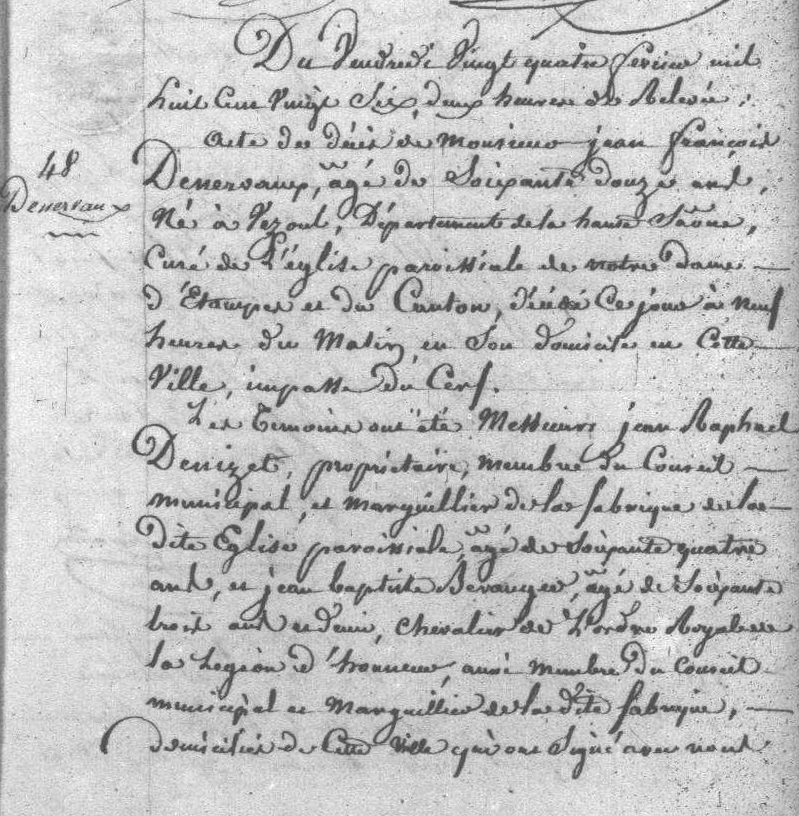 Du Vendredi Vingt quatre fevrier mil
huit Cent Vingt Six, deux heures de Relevée,
Acte de décès de Monsieur jean françois
48
Denervaux, âgé de Soixante douze ans,
Denervaux
Né à Vezoul, Département de la haute Saône,
Curé de L'église paroissiale de notre dame
d'Étampes et du Canton, décédé Ce jour à neuf
heures du Matin, en Son domicile en Cette
Ville, impasse du Cerf.
Les temoins ont été Messieurs jean Raphael
Denizet, propriétaire, membre du Conseil
municipal, et Marguillier de la fabrique de la
dite Eglise paroissiale, âgé de Soixante quatre
ans, et jean baptiste Beranger, âgé de Soixante
trois ans et demi, Chevalier de L'ordre Royal de
la Legion d'honneur, aussi membre du Conseil
municipal et Marguillier de la dite fabrique,
domiciliés de Cette Ville qui ont Signé avec nous